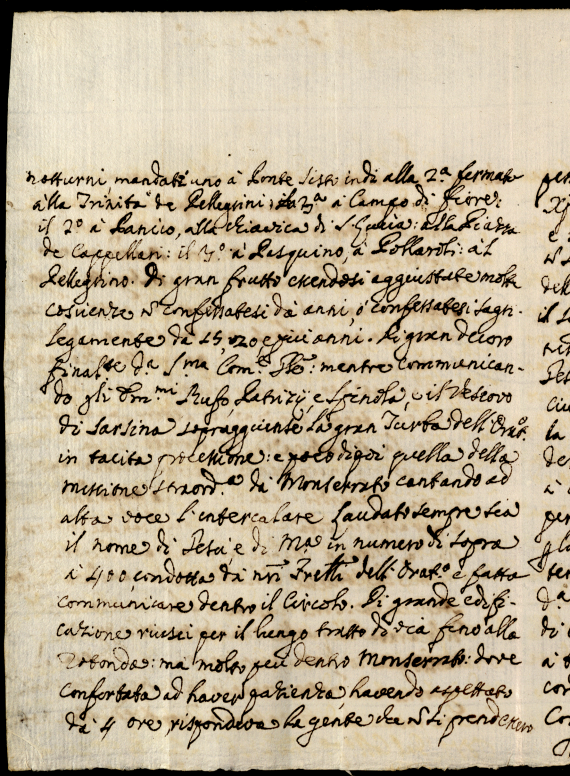 notturni, mandati uno à Ponte Sisto indi alla 2.ª fermata
alla Trinità de Pellegrini: la 3ª à Campo di Fiore:
il 2º à Panico, alla chiavica di S. Lucia: alla Piazza
de Cappellari: il 3º à Pasquino, à Pollaroli: al
Pellegrino. Di gran frutto essendosi aggiustate molte
coscienze confessatesi dà anni, ò confessatesi sagri-
legamente dà 15, 20 e più anni. Di gran decoro
final.te da S.ma Com.e : mentre communican-
do gli Em.mi Ruffo, Patrizij e Spinola, e il Vescovo
di Sarsina sopraggiunse la gran Turba dell'Orat.º
in tacita processione: e poco di poi quella della
missione straord.ª da Monserrato cantando ad
alta voce l'intercalare Laudato sempre sia
il nome di Gesù e di M.ª in numero di sopra
à 400, condotta dà nri Frelli dell'Orat.º e fatta
communicare dentro il Circolo. Di grande edifi-
cazione riuscì per il lungo tratto di via fino alla
Rotonda: mà molto più dentro Monserrato: dove
confortata ad haver pazienza, havendo aspettato
dà 4 ore, rispondeva la gente che si prendessero